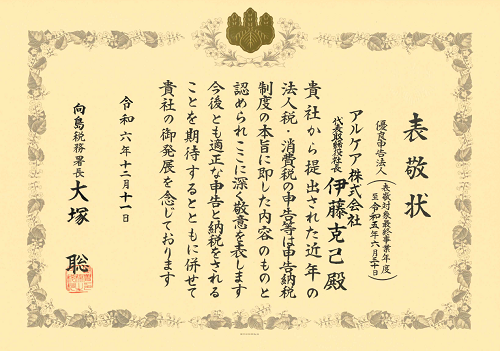 表敬状
優良申告法人
（表敬対象最終事業年度
至令和五年六月三十日）
アルケア株式会社
代表取締役社長
伊藤克己殿
貴社から提出された近年の
法人税・消費税の申告等は申告納税
制度の本旨に即した内容のものと
認められここに深く敬意を表します
今後とも適正な申告と納税をされる
ことを期待するとともに併せて
貴社の御発展を念じております
令和六年十二月十一日
向島税務署長 大塚 聡